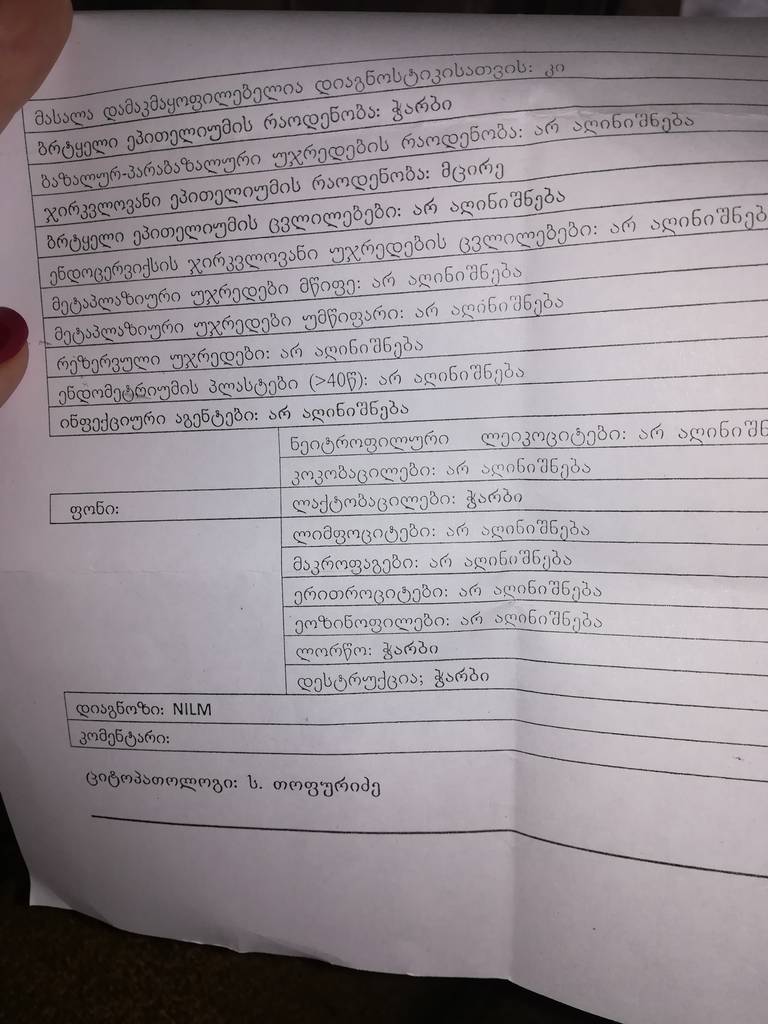 მასალა დამაკმაყოფილებელია დიაგნოსტიკისათვის: კი
ბრტყელი ეპითელიუმის რაოდენობა: ჭარბი
ბაზალურ-პარაბაზალური უჯრედების რაოდენობა: არ აღინიშნება
ჯირკვლოვანი ეპითელიუმის რაოდენობა: მცირე
ბრტყელი ეპითელიუმის ცვლილებები: არ აღინიშნება
ენდოცერვიქსის ჯირკვლოვანი უჯრედების ცვლილებები: არ აღინიშნებ
მეტაპლაზიური უჯრედები მწიფე: არ აღინიშნება
მეტაპლაზიური უჯრედები უმწიფარი: არ აღინიშნება
რეზერვული უჯრედები: არ აღინიშნება
ენდომეტრიუმის პლასტები (>40წ): არ აღინიშნება
ინფექციური აგენტები: არ აღინიშნება
ნეიტროფილური ლეიკოციტები: არ აღინიშნ
კოკობაცილები: არ აღინიშნება
ფონი: ლაქტობაცილები: ჭარბი
ლიმფოციტები: არ აღინიშნება
მაკროფაგები: არ აღინიშნება
ერითროციტები: არ აღინიშნება
ეოზინოფილები: არ აღინიშნება
ლორწო: ჭარბი
დესტრუქცია; ჭარბი
დიაგნოზი: NILM
კომენტარი:
ციტოპათოლოგი: ს. თოფურიძე